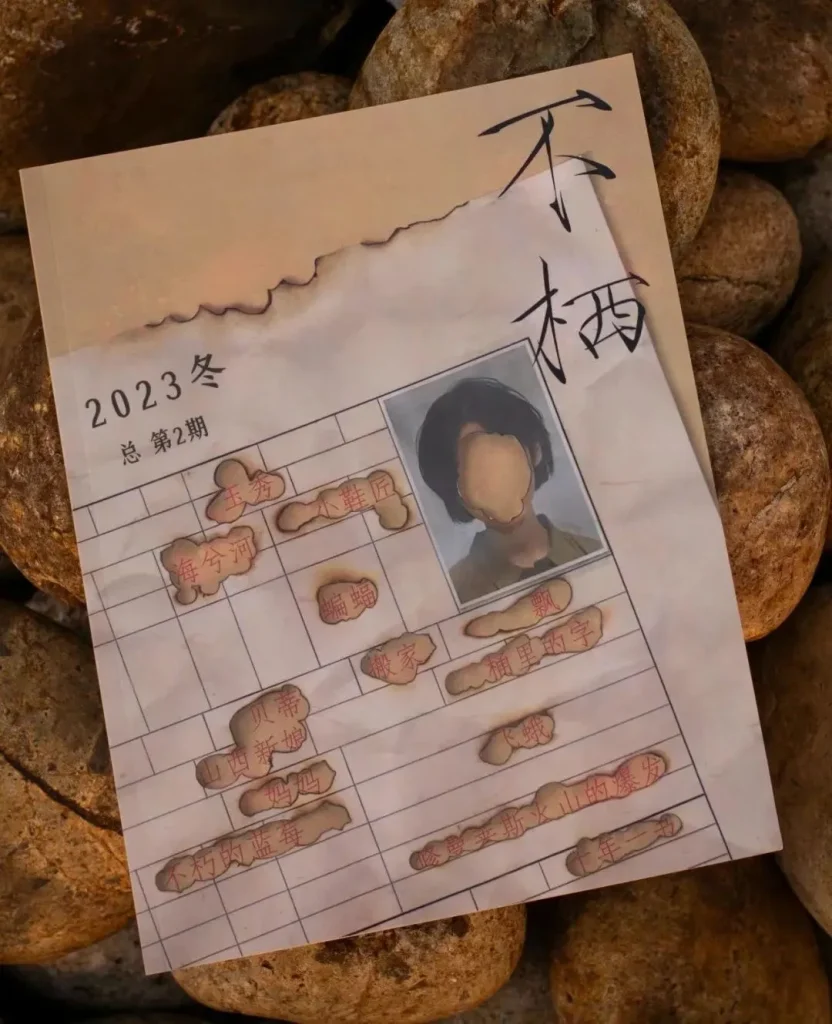 不栖
2023冬
总 第2期
玉秀
小鞋匠
海兮河
蝙蝠
飘
搬家
里的字
贝蒂
山西新娘
飞蛾
妈妈
萨莱斯火山的爆发
不朽的蓝莓
十年一书